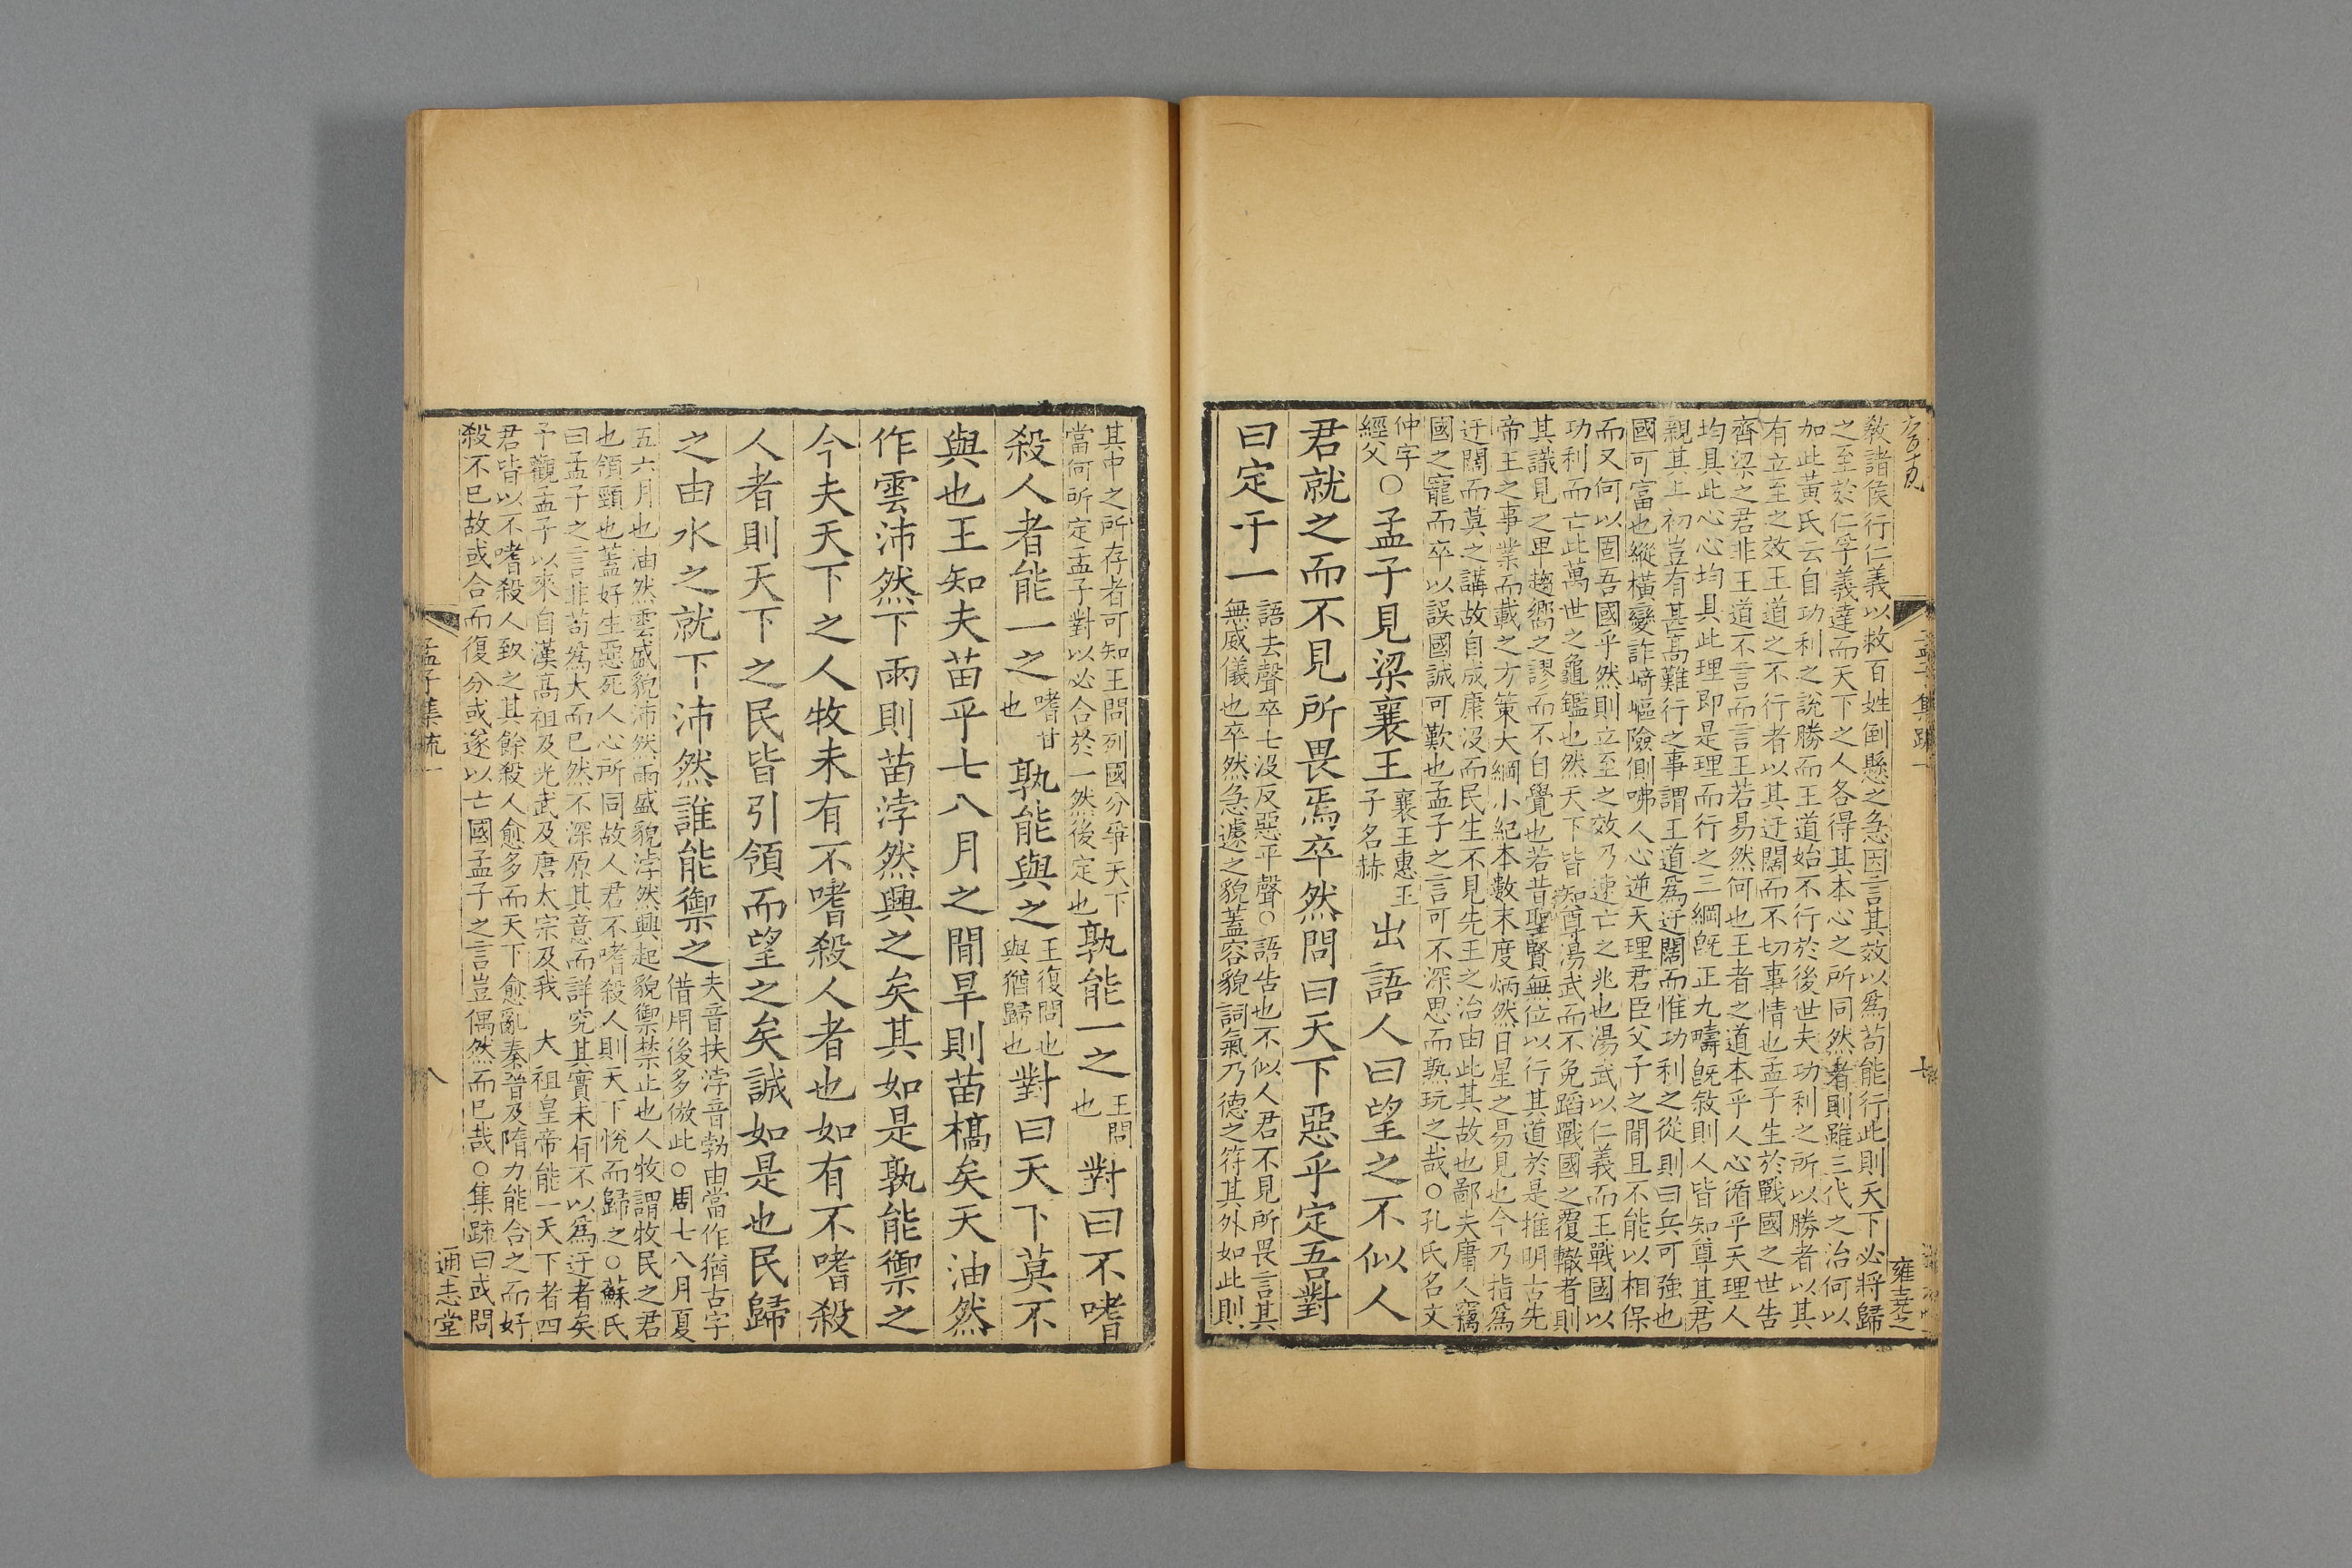 教諸侯行仁義以救百姓倒懸之急因言其效以爲苟能行此則天下必將歸
之至於仁孚義達而天下之人各得其本心之所同然者則雖三代之治何以
加此黃氏云自功利之說勝而王道始不行於後世夫功利之所以勝者以其
有立至之效王道之不行者以其迂闊而不切事情也孟子生於戰國之世告
齊梁之君非王道不言而言王若易然何也王者之道本乎人心循乎天理人
均具此心心均具此理即是理而行之三綱旣正九疇旣敘則人皆知尊其君
親其上初豈有甚高難行之事謂王道爲迂闊而惟功利之從則曰兵可強也
國可富也縱橫變詐崎嶇險側咈人心逆天理君臣父子之閒且不能以相保
而又何以固吾國乎然則立至之效乃速亡之兆也湯武以仁義而王戰國以
功利而亡此萬世之龜鑑也然天下皆知尊湯武而不免蹈戰國之覆轍者則
其識見之卑趨嚮之謬而不自覺也若昔聖賢無位以行其道於是推明古先
帝王之事業而載之方策大綱小紀本數末度炳然日星之易見也今乃指爲
迂闊而莫之講故自成康沒而民生不見先王之治由此其故也鄙夫庸人竊
國之寵而卒以誤國誠可歎也孟子之言可不深思而熟玩之哉○孔氏名文
仲字
經父
○孟子見梁襄王
襄王惠王
子名赫
出語人曰望之不似人
君就之而不見所畏焉卒然問曰天下惡乎定吾對
曰定于一
語去聲卒七沒反惡平聲○語告也不似人君不見所畏言其
無威儀也卒然急遽之貌蓋容貌詞氣乃德之符其外如此則
其中之所存者可知王問列國分爭天下
當何所定孟子對以必合於一然後定也
孰能一之
王問
也
對曰不嗜
殺人者能一之
嗜甘
也
孰能與之
王復問也
與猶歸也
對曰天下莫不
與也王知夫苗乎七八月之閒旱則苗槁矣天油然
作雲沛然下雨則苗浡然興之矣其如是孰能禦之
今夫天下之人牧未有不嗜殺人者也如有不嗜殺
人者則天下之民皆引領而望之矣誠如是也民歸
之由水之就下沛然誰能禦之
夫音扶浡音勃由當作猶古字
借用後多倣此○周七八月夏
五六月也油然雲盛貌沛然雨盛貌浡然興起貌禦禁止也人牧謂牧民之君
也領頸也蓋好生惡死人心所同故人君不嗜殺人則天下悅而歸之○蘇氏
曰孟子之言非苟爲大而已然不深原其意而詳究其實未有不以爲迂者矣
予觀孟子以來自漢高祖及光武及唐太宗及我　太祖皇帝能一天下者四
君皆以不嗜殺人致之其餘殺人愈多而天下愈亂秦晉及隋力能合之而好
殺不已故或合而復分或遂以亡國孟子之言豈偶然而已哉○集疏曰或問
孟子集疏一
八
通志堂